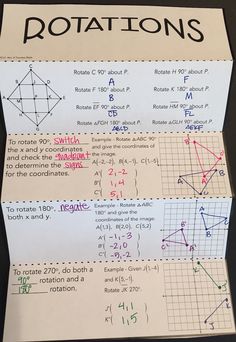 ROTATIONS
Rotate C 90° about P.
A
Rotate H 90° about P.
F
Rotate F 180° about P.
B
Rotate K 180° about P.
M
Rotate EF 90° about P.
Rotate HM 90° about P.
FL
Rotate △FGH 180° about P.
Rotate △GLH 90° about P.
To rotate 90°, switch
the x and y coordinates
and check the quadrant
to determine the signs
for the coordinates.
Example - Rotate △ABC 90°
and give the coordinates of
the image.
A'( 2,-2
B'( 1,4
C'( 5,1
To rotate 180°, negate
both x and y.
Example - Rotate △ABC
180° and give the
coordinates of the image.
A(1,3), B(2,0), C(5,2)
A'( -1,-3 )
B'( -2,0 )
C'( -5,-2 )
To rotate 270°, do both a
90° rotation and a
180° rotation.
Example - Given J(1,-4)
and K(5,-1).
Rotate JK 270°.
J"( 4,1
K"( 1,5